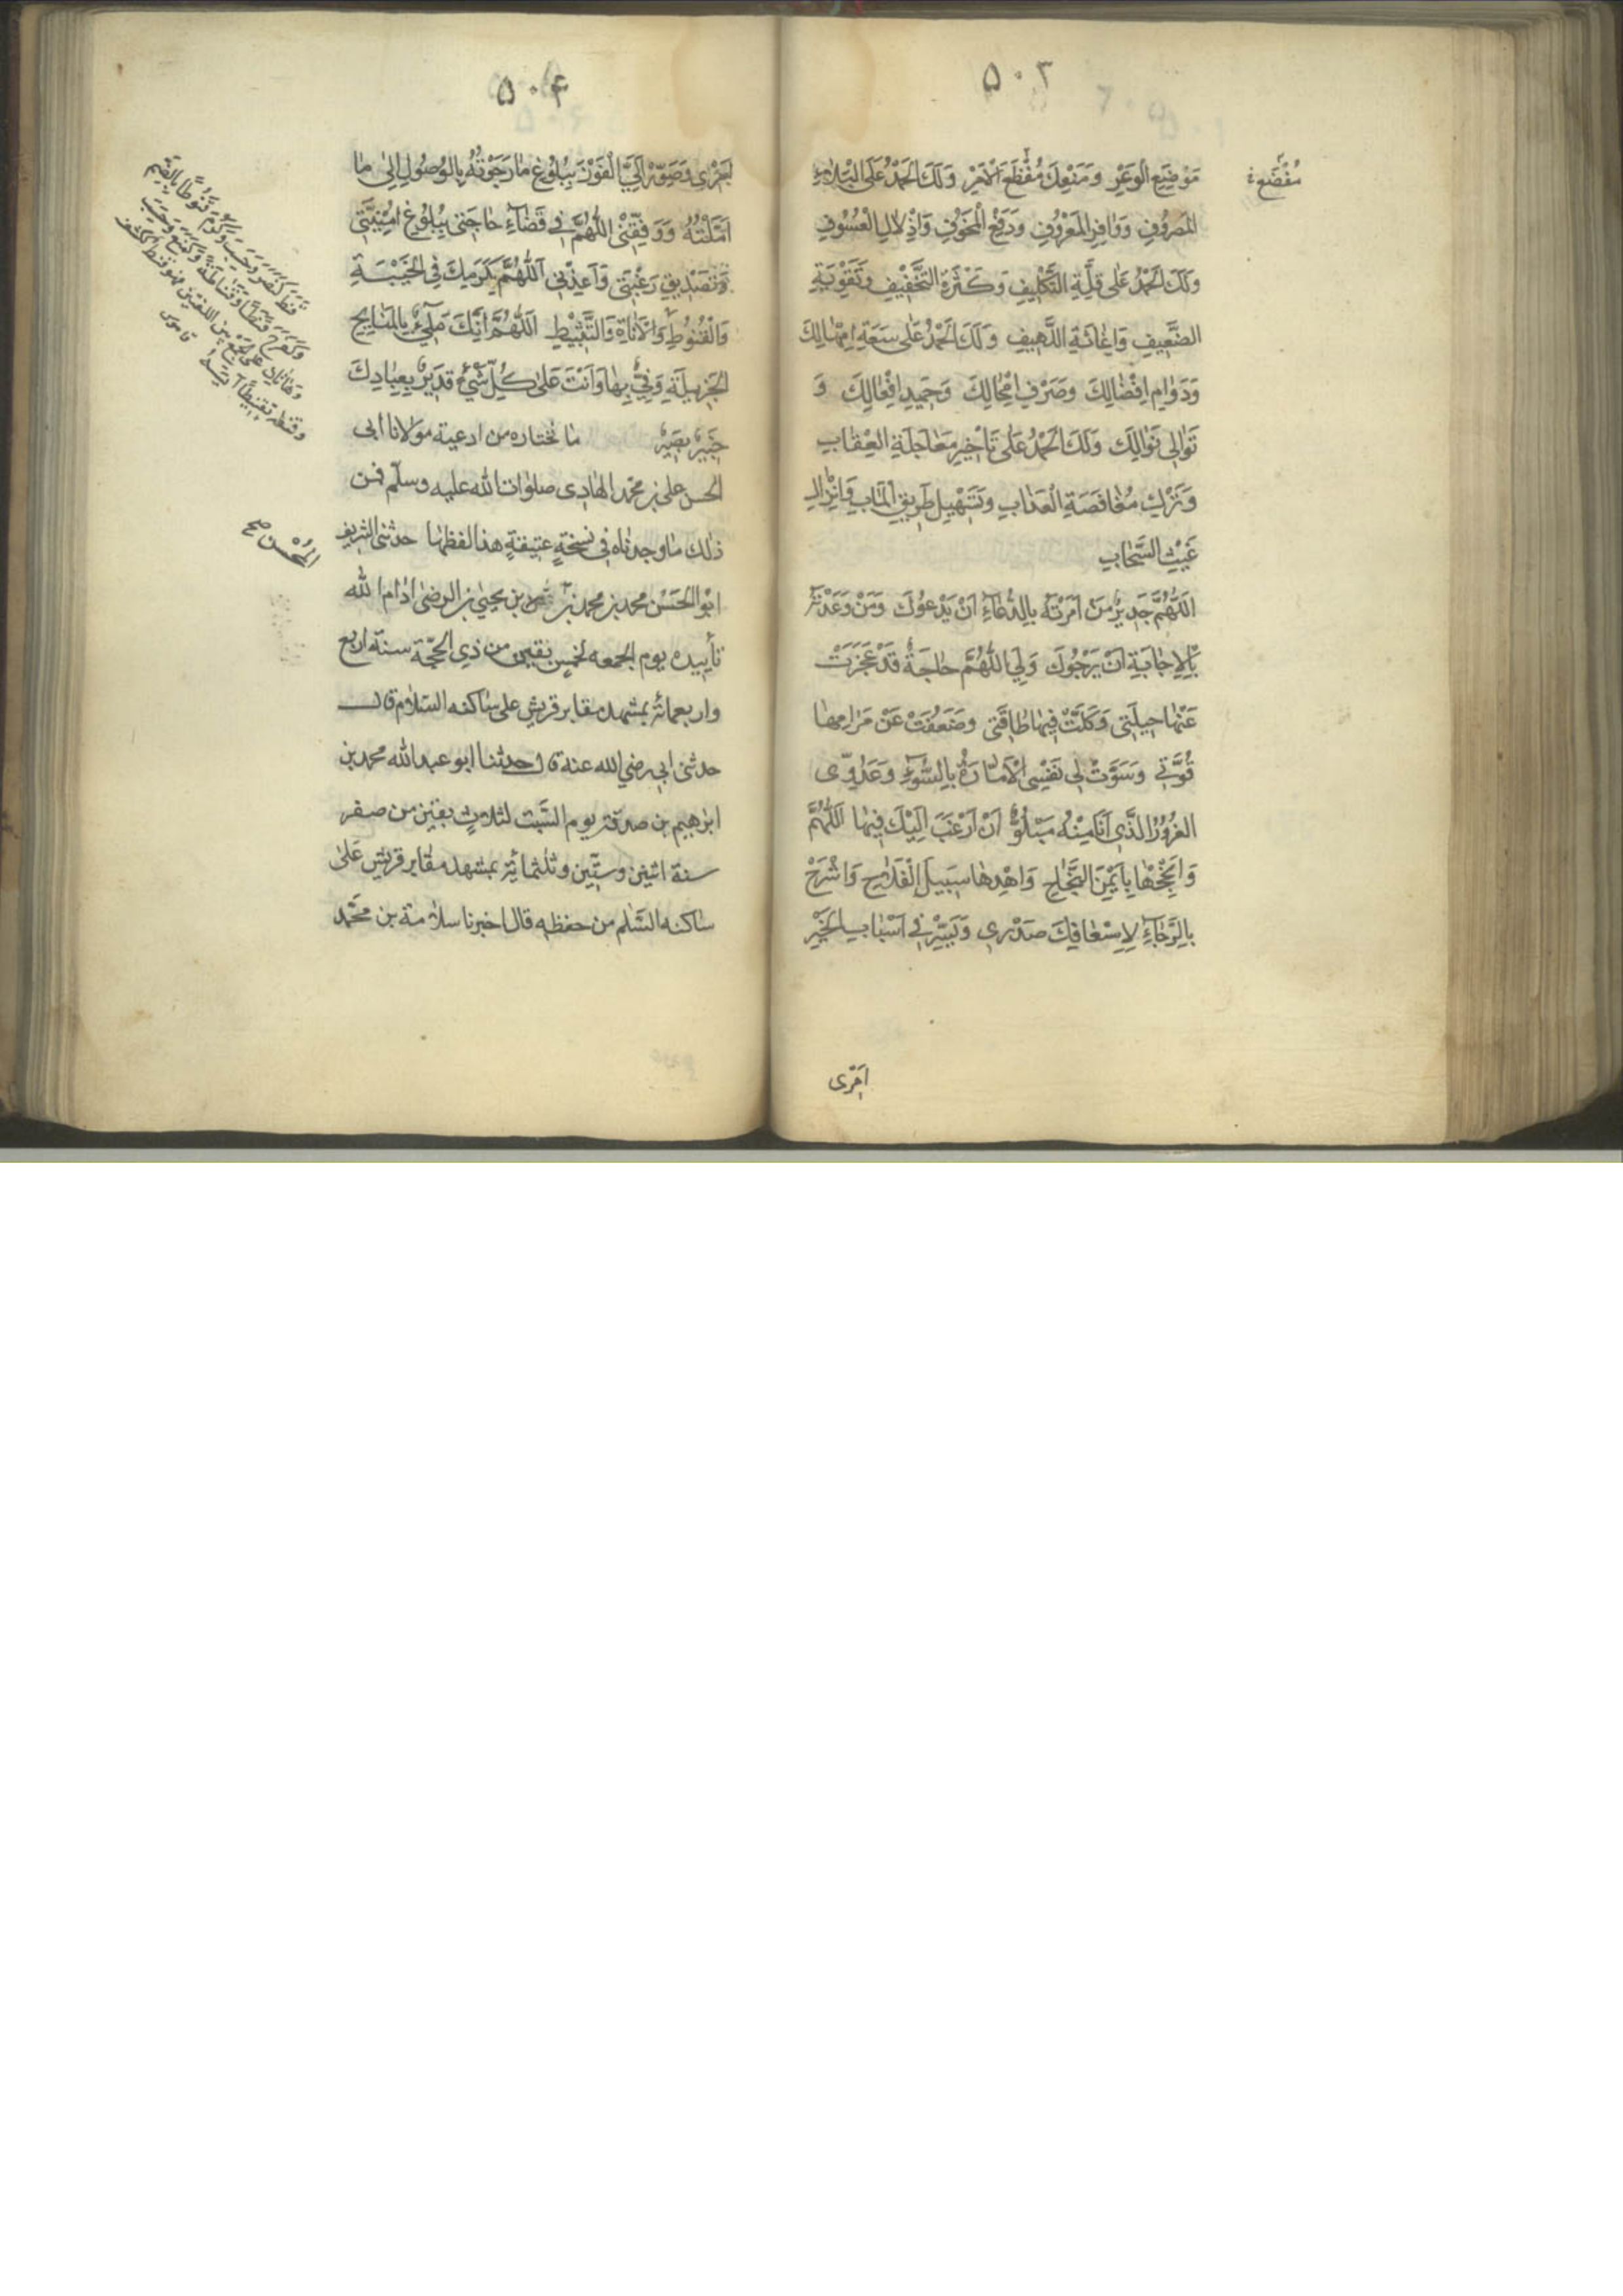 ۵۰۳
مُفْضَع
مَوْضِعِ الْوَعْرِ وَمَنْعِكَ مُفْظِعَ الْاَمْرِ وَلَكَ الْحَمْدُ عَلَى الْبَلَاءِ
الْمَصْرُوفِ وَوَافِرِ الْمَعْرُوفِ وَدَفْعِ الْمَخُوفِ وَاِذْلَالِ الْعَسُوفِ
وَلَكَ الْحَمْدُ عَلٰى قِلَّةِ التَّكْلِيفِ وَكَثْرَةِ التَّخْفِيفِ وَتَقْوِيَةِ
الضَّعِيفِ وَاِغَاثَةِ اللَّهِيفِ وَلَكَ الْحَمْدُ عَلٰى سَعَةِ اِمْهَالِكَ
وَدَوَامِ اِفْضَالِكَ وَصَرْفِ اِمْحَالِكَ وَحَمِيدِ اَفْعَالِكَ وَ
تَوَالِى نَوَالِكَ وَلَكَ الْحَمْدُ عَلٰى تَاْخِيرِ مُعَاجَلَةِ الْعِقَابِ
وَتَرْكِ مُغَافَصَةِ الْعَذَابِ وَتَسْهِيلِ طَرِيقِ الْمَاٰبِ وَاِنْزَالِ
غَيْثِ السَّحَابِ
اَللّٰهُمَّ جَدِيرٌ مَنْ اَمَرْتَهُ بِالدُّعَاءِ اَنْ يَدْعُوَكَ وَمَنْ وَعَدْتَهُ
بِالْاِجَابَةِ اَنْ يَرْجُوَكَ وَلِيَ اللّٰهُمَّ حَاجَةٌ قَدْ عَجَزَتْ
عَنْهَا حِيلَتِى وَكَلَّتْ فِيهَا طَاقَتِى وَضَعُفَتْ عَنْ مَرَامِهَا
قُوَّتِى وَسَوَّلَتْ لِى نَفْسِى الْاَمَّارَةُ بِالسُّوءِ وَعَدُوِّى
الْغَرُورُ الَّذِى اَنَا مِنْهُ مَبْلُوٌّ اَنْ اَرْغَبَ اِلَيْكَ فِيهَا اَللّٰهُمَّ
وَاَنْجِحْهَا بِاَيْمَنِ النَّجَاحِ وَاهْدِهَا سَبِيلَ الْفَلَاحِ وَاشْرَحْ
بِالرَّجَاءِ لِاِسْعَافِكَ صَدْرِى وَيَسِّرْ فِى اَسْبَابِ الْخَيْرِ
اَمْرِى
۵۰۴
اَمْرِى وَصَوِّرْ اِلَيَّ الْفَوْزَ بِبُلُوغِ مَا رَجَوْتُهُ بِالْوُصُولِ اِلٰى مَا
اَمَّلْتُهُ وَوَفِّقْنِى اللّٰهُمَّ فِى قَضَاءِ حَاجَتِى بِبُلُوغِ اُمْنِيَّتِى
وَتَصْدِيقِ رَغْبَتِى وَاَعِذْنِى اَللّٰهُمَّ بِكَرَمِكَ فِى الْخَيْبَةِ
وَالْقُنُوطِ وَالْاَنَاةِ وَالتَّثْبِيطِ اَللّٰهُمَّ اِنَّكَ مَلِيٌّ بِالْمَنَايِحِ
الْجَزِيلَةِ وَفِيٌّ بِهَا وَاَنْتَ عَلٰى كُلِّ شَيْءٍ قَدِيرٌ بِعِبَادِكَ
خَبِيرٌ بَصِيرٌ ما نختاره من ادعية مولانا ابى
الحسن على بن محمد الهادى صلوات الله عليه وسلّم فمن
ذلك ما وجدناه فى نسخةٍ عتيقةٍ هذا لفظها حدثنى الشريف
ابو الحَسَن محمد بن محمد بن بن يحيى بن الرضى ادام الله
تأييده يوم الجمعه لخمسٍ بقين من ذى الحجّة سنة اربع
واربعمائة بمشهد مقابر قريش على ساكنه السّلام قال
حدثنى ابى رضى الله عنه قال حدثنا ابو عبد الله محمد بن
ابرهيم بن صدقة يوم السّبت لثلاث بقين من صفر
سنة اثنين وستّين وثلثمائة بمشهد مقابر قريش عَلٰى
ساكنه السّلم من حفظه قال اخبرنا سلامة بن محمّد
قنط كنصر وحسب وكرم قنوطاً بالضم
وكفرح قنطاً وقناطةً وكمنع وحسب
وهاتان على الجمع بين اللغتين فهو قنط ككتف
وقنطه تقنيطاً آيسه قاموس
المُحْسِن